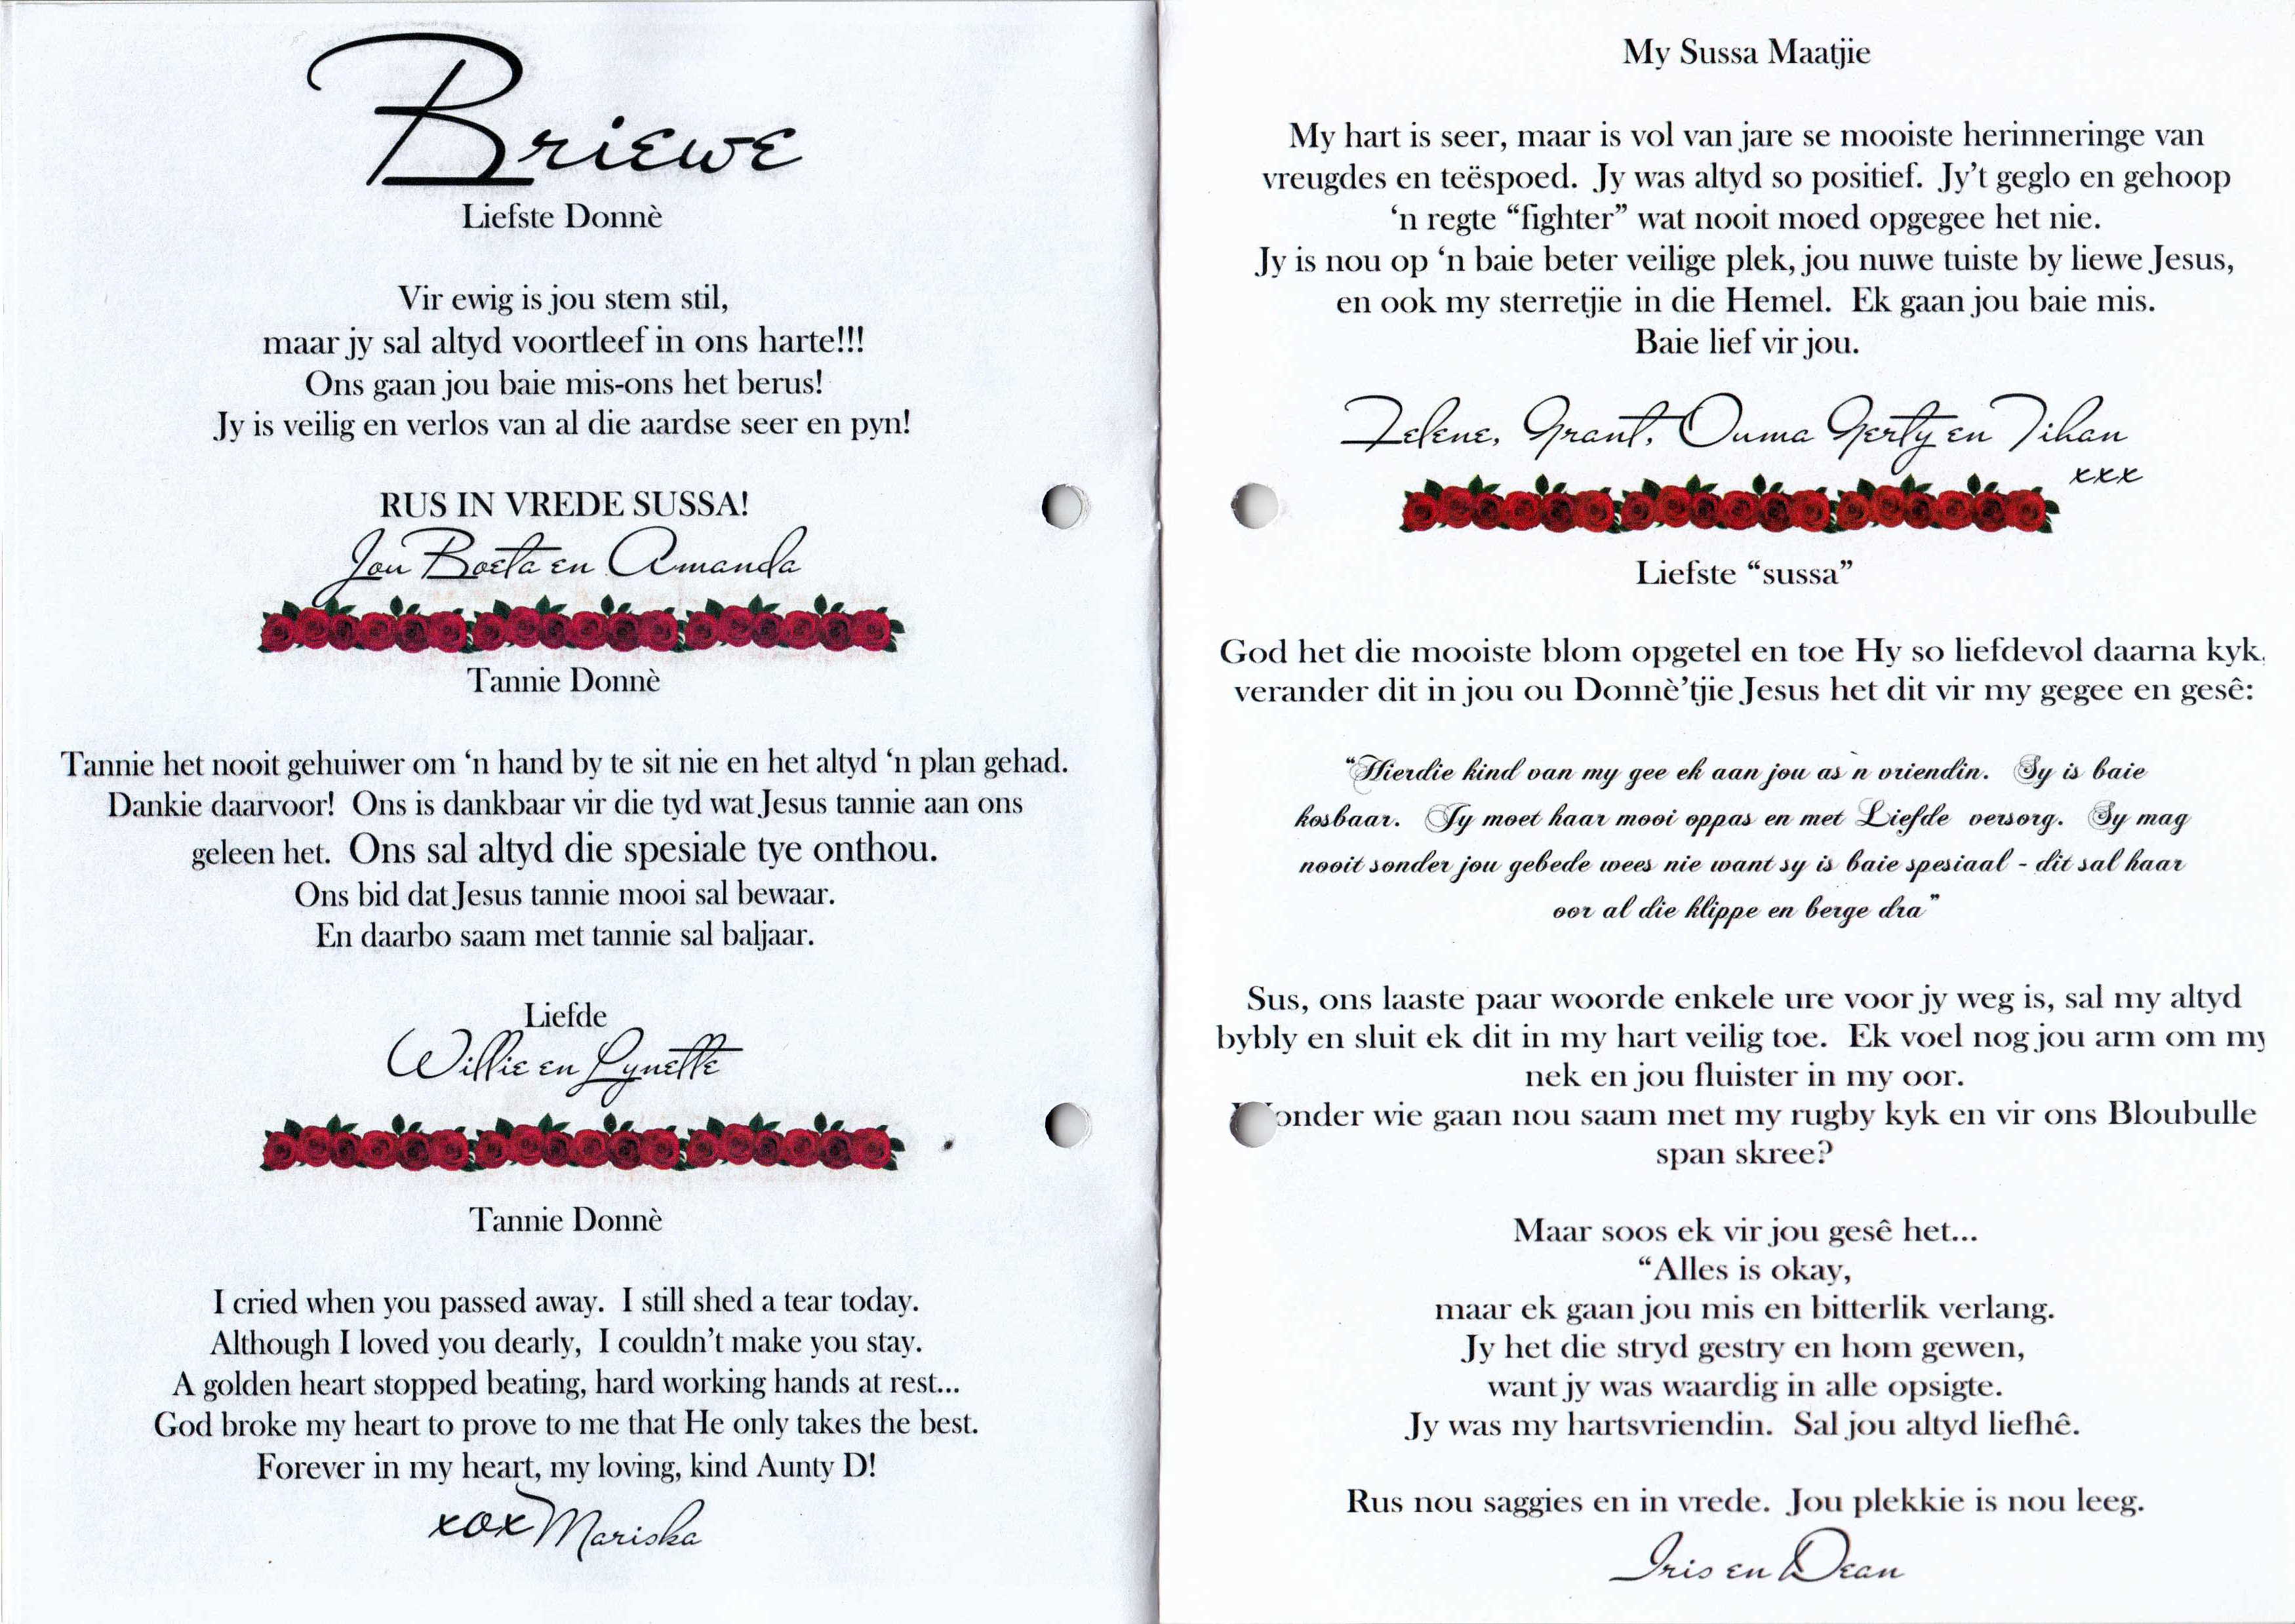 Briewe
Liefste Donnè
Vir ewig is jou stem stil,
maar jy sal altyd voortleef in ons harte!!!
Ons gaan jou baie mis-ons het berus!
Jy is veilig en verlos van al die aardse seer en pyn!
RUS IN VREDE SUSSA!
Jou Boeta en Amanda
Tannie Donnè
Tannie het nooit gehuiwer om ‘n hand by te sit nie en het altyd ‘n plan gehad.
Dankie daarvoor! Ons is dankbaar vir die tyd wat Jesus tannie aan ons
geleen het. Ons sal altyd die spesiale tye onthou.
Ons bid dat Jesus tannie mooi sal bewaar.
En daarbo saam met tannie sal baljaar.
Liefde
Willie en Lynette
Tannie Donnè
I cried when you passed away. I still shed a tear today.
Although I loved you dearly, I couldn’t make you stay.
A golden heart stopped beating, hard working hands at rest...
God broke my heart to prove to me that He only takes the best.
Forever in my heart, my loving, kind Aunty D!
xox Mariska
My Sussa Maatjie
My hart is seer, maar is vol van jare se mooiste herinneringe van
vreugdes en teëspoed. Jy was altyd so positief. Jy’t geglo en gehoop
‘n regte “fighter” wat nooit moed opgegee het nie.
Jy is nou op ‘n baie beter veilige plek, jou nuwe tuiste by liewe Jesus,
en ook my sterretjie in die Hemel. Ek gaan jou baie mis.
Baie lief vir jou.
Grant, Ouma Gerty en Tihan
xxx
Liefste “sussa”
God het die mooiste blom opgetel en toe Hy so liefdevol daarna kyk,
verander dit in jou ou Donnè’tjie Jesus het dit vir my gegee en gesê:
“Hierdie kind van my gee ek aan jou as `n vriendin. Sy is baie
kosbaar. Jy moet haar mooi oppas en met Liefde versorg. Sy mag
nooit sonder jou gebede wees nie want sy is baie spesiaal - dit sal haar
oor al die klippe en berge dra”
Sus, ons laaste paar woorde enkele ure voor jy weg is, sal my altyd
bybly en sluit ek dit in my hart veilig toe. Ek voel nog jou arm om my
nek en jou fluister in my oor.
Wonder wie gaan nou saam met my rugby kyk en vir ons Bloubulle
span skree?
Maar soos ek vir jou gesê het...
“Alles is okay,
maar ek gaan jou mis en bitterlik verlang.
Jy het die stryd gestry en hom gewen,
want jy was waardig in alle opsigte.
Jy was my hartsvriendin. Sal jou altyd liefhê.
Rus nou saggies en in vrede. Jou plekkie is nou leeg.
Iris en Dean